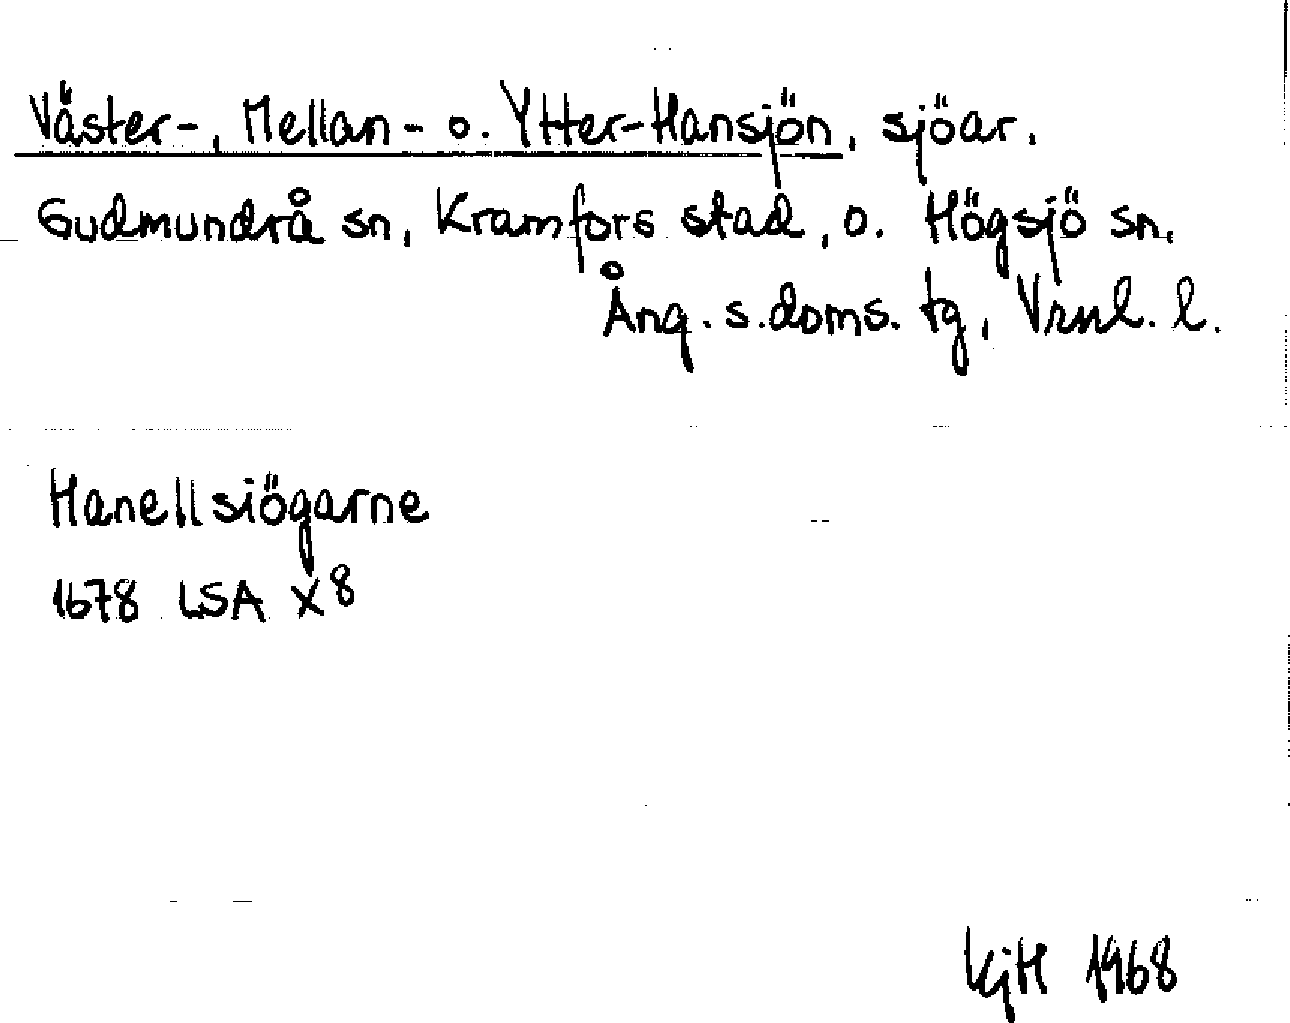 Väster-, Mellan- o. Ytter-Hansjön, sjöar.
Gudmundrå sn, Kramfors stad, o. Högsjö sn.
Ång. s. doms. tg, Vrnl. l.
Hanellsiögarne
1678 LSA X8
KjH 1968